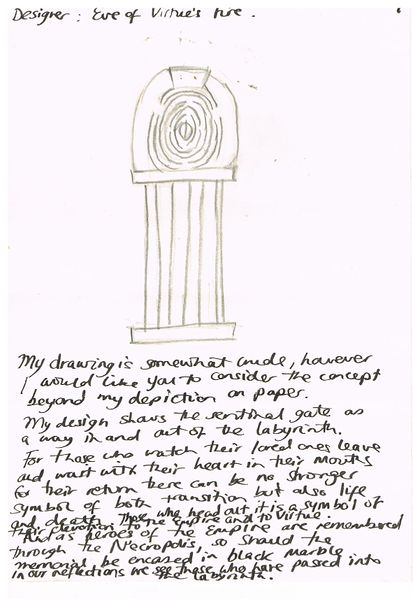 Designer : Eve of Virtue's fire .
My drawing is somewhat crude, however
I would like you to consider the concept
beyond my depiction on paper.
My design shows the sentinal gate as
a way in and out of the labyrinth.
For those who watch their loved ones leave
and wait with their heart in their mouths
for their return there can be no stronger
symbol of both transition but also life
and death. Those who head out it is a symbol of
their devotion to the Empire and to Virtue.
And as heroes of the Empire are remembered
through the Necropolis, so should the
memorial be encased in black marble
in our reflections we see those who have passed into
the labyrinth.